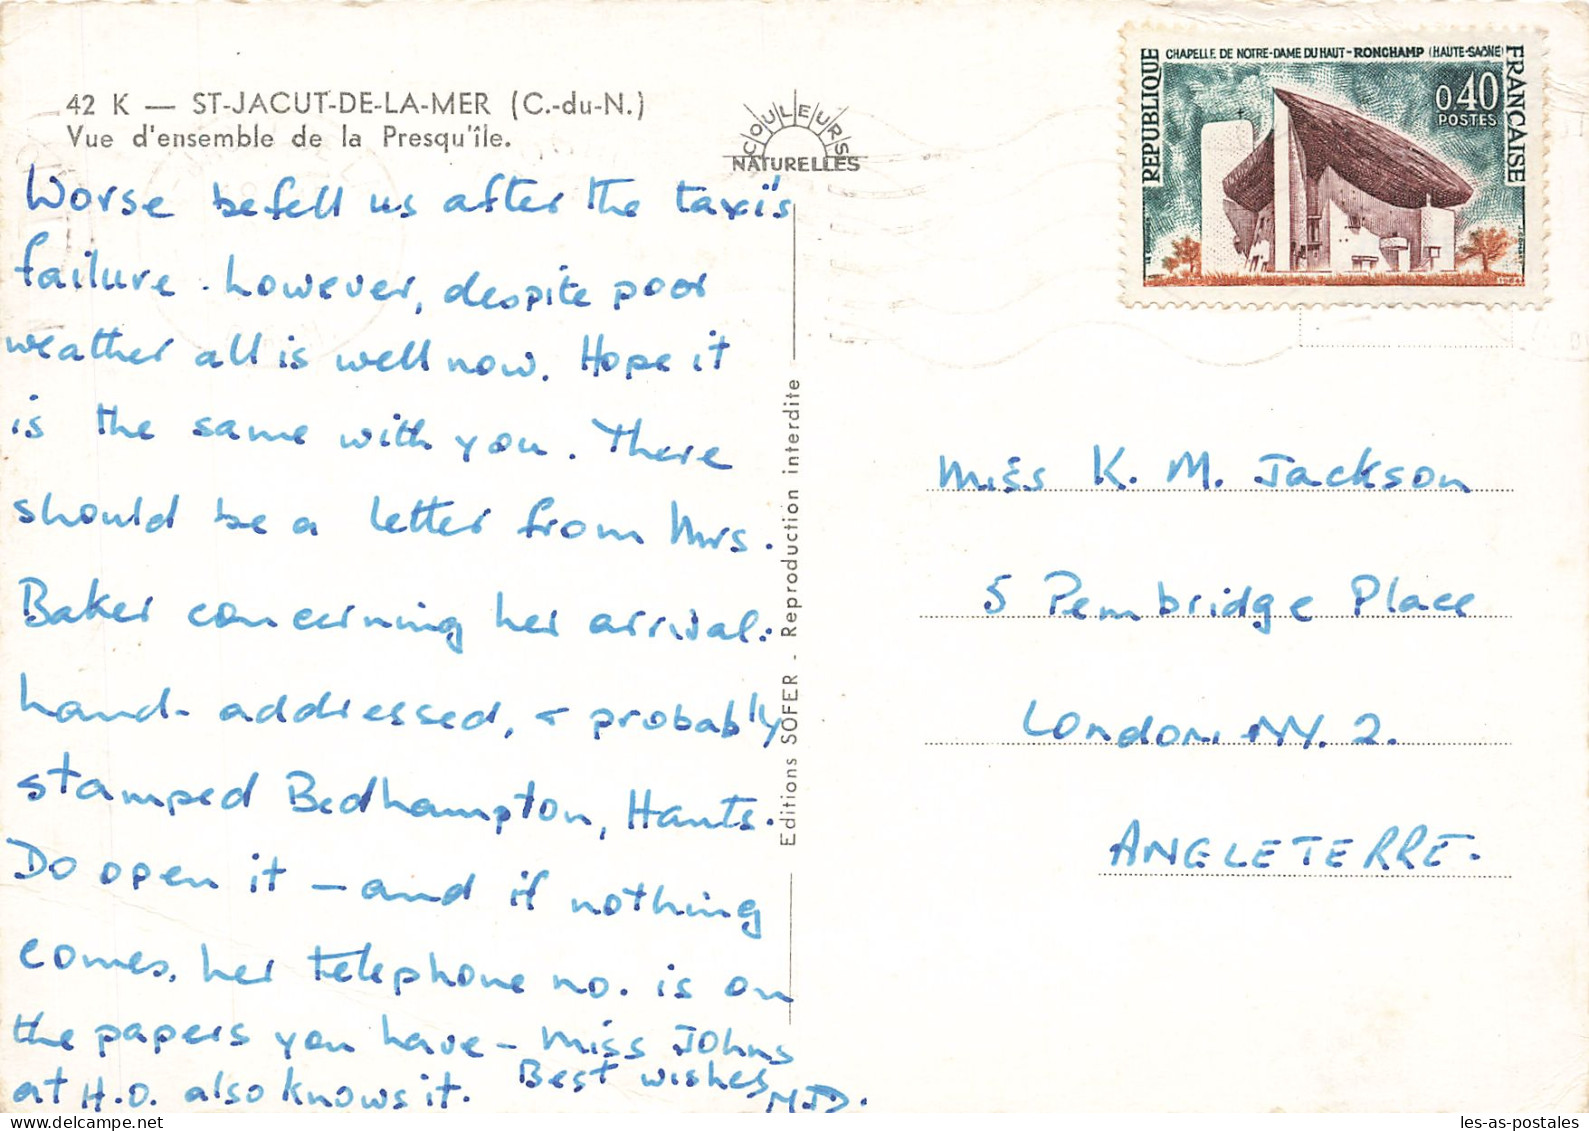 42 K — ST-JACUT-DE-LA-MER (C.-du-N.)
Vue d'ensemble de la Presqu'île.
COULEURS
NATURELLES
Worse befell us after the taxi's
failure. however, despite poor
weather all is well now. Hope it
is the same with you. There
should be a letter from Mrs.
Baker concerning her arrival:
hand-addressed, & probably
stamped Bedhampton, Hants.
Do open it – and if nothing
comes, her telephone no. is on
the papers you have – Miss Johns
at H.O. also knows it. Best wishes
MJD.
Editions SOFER - Reproduction interdite
CHAPELLE DE NOTRE-DAME DU HAUT - RONCHAMP (HAUTE-SAÔNE)
REPUBLIQUE
FRANÇAISE
0,40
POSTES
Miss K. M. Jackson
5 Pembridge Place
London. W. 2.
ANGLETERRE.
les-as-postales